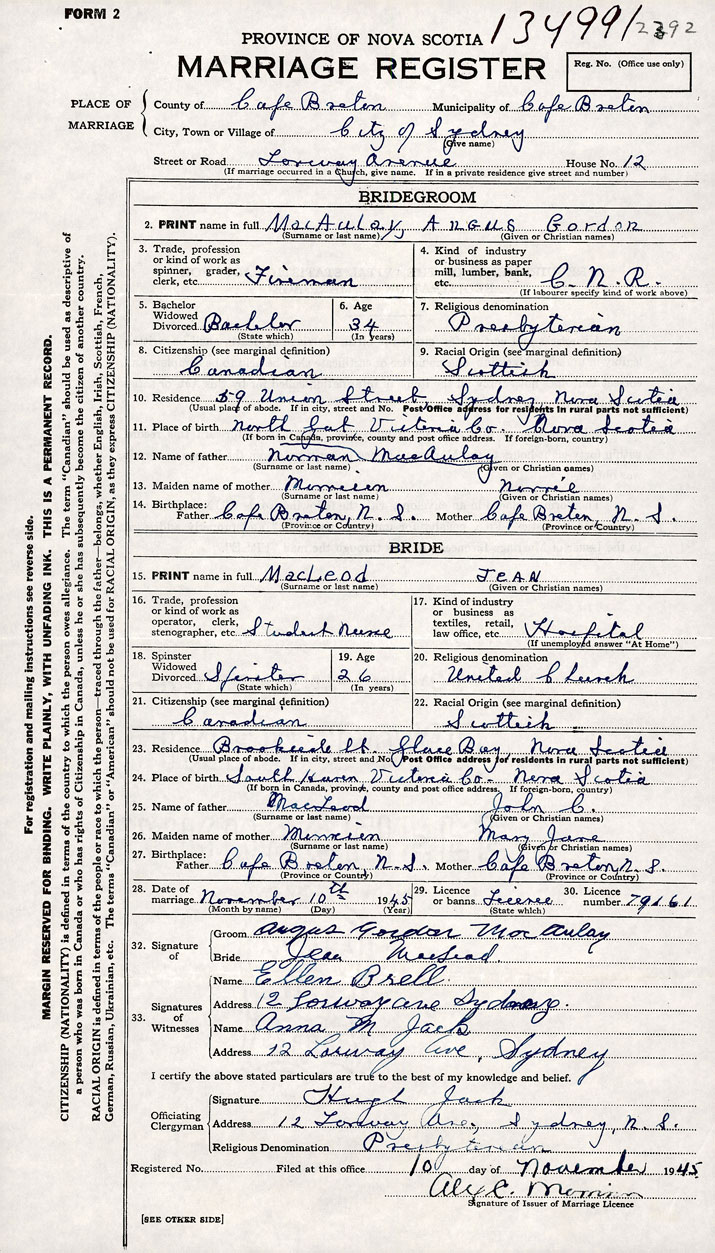 FORM 2
134991
2392
PROVINCE OF NOVA SCOTIA
MARRIAGE REGISTER
Reg. No. (Office use only)
PLACE OF MARRIAGE
County of Cape Breton Municipality of Cape Breton
City, Town or Village of City of Sydney
(Give name)
Street or Road Lorway Avenue House No. 12
(If marriage occurred in a Church, give name. If in a private residence give street and number)
BRIDEGROOM
2. PRINT name in full MacAulay, Angus Gordon
(Surname or last name) (Given or Christian names)
3. Trade, profession or kind of work as spinner, grader, clerk, etc. Fireman
4. Kind of industry or business as paper mill, lumber, bank, etc. C. N. R.
(If labourer specify kind of work above)
5. Bachelor Widowed Divorced Bachelor
(State which)
6. Age 34
(In years)
7. Religious denomination
Presbyterian
8. Citizenship (see marginal definition)
Canadian
9. Racial Origin (see marginal definition)
Scottish
10. Residence 59 Union Street, Sydney Nova Scotia
(Usual place of abode. If in city, street and No. Post Office address for residents in rural parts not sufficient)
11. Place of birth North Gut Victoria Co. Nova Scotia
(If born in Canada, province, county and post office address. If foreign-born, country)
12. Name of father Norman MacAulay
(Surname or last name) (Given or Christian names)
13. Maiden name of mother Morrison
(Surname or last name) (Given or Christian names)
14. Birthplace: Father Cape Breton, N. S. Mother Cape Breton, N. S.
(Province or Country) (Province or Country)
BRIDE
15. PRINT name in full MacLeod JEAN
(Surname or last name) (Given or Christian names)
16. Trade, profession or kind of work as operator, clerk, stenographer, etc. Student Nurse
17. Kind of industry or business as textiles, retail, law office, etc. Hospital
(If unemployed answer "At Home")
18. Spinster Widowed Divorced Spinster
(State which)
19. Age 26
(In years)
20. Religious denomination
United Church
21. Citizenship (see marginal definition)
Canadian
22. Racial Origin (see marginal definition)
Scottish
23. Residence Brookside St. Glace Bay, Nova Scotia
(Usual place of abode. If in city, street and No. Post Office address for residents in rural parts not sufficient)
24. Place of birth South Haven Victoria Co. Nova Scotia
(If born in Canada, province, county and post office address. If foreign-born, country)
25. Name of father MacLeod John C.
(Surname or last name) (Given or Christian names)
26. Maiden name of mother Morrison Mary Jane
(Surname or last name) (Given or Christian names)
27. Birthplace: Father Cape Breton, N. S. Mother Cape Breton, N. S.
(Province or Country) (Province or Country)
28. Date of marriage November 10th 1945
(Month by name) (Day) (Year)
29. Licence or banns Licence
(State which)
30. Licence number 79161
32. Signature of
Groom Angus Gordon MacAulay
Bride Jean MacLeod
33. Signatures of Witnesses
Name Ellen Brell
Address 12 Lorway ave Sydney.
Name Anna M Jack
Address 12 Lorway Ave, Sydney
I certify the above stated particulars are true to the best of my knowledge and belief.
Officiating Clergyman
Signature Hugh Jack
Address 12 Lorway Ave, Sydney, N. S.
Religious Denomination Presbyterian
Registered No. Filed at this office 10 day of November 1945
Alex C. Morrison
Signature of Issuer of Marriage Licence
[SEE OTHER SIDE]
For registration and mailing instructions see reverse side.
MARGIN RESERVED FOR BINDING. WRITE PLAINLY, WITH UNFADING INK. THIS IS A PERMANENT RECORD.
CITIZENSHIP (NATIONALITY) is defined in terms of the country to which the person owes allegiance. The term "Canadian" should be used as descriptive of
a person who was born in Canada or who has rights of Citizenship in Canada, unless he or she has subsequently become the citizen of another country.
RACIAL ORIGIN is defined in terms of the people or race to which the person—traced through the father—belongs, whether English, Irish, Scottish, French,
German, Russian, Ukrainian, etc. The terms "Canadian" or "American" should not be used for RACIAL ORIGIN, as they express CITIZENSHIP (NATIONALITY).